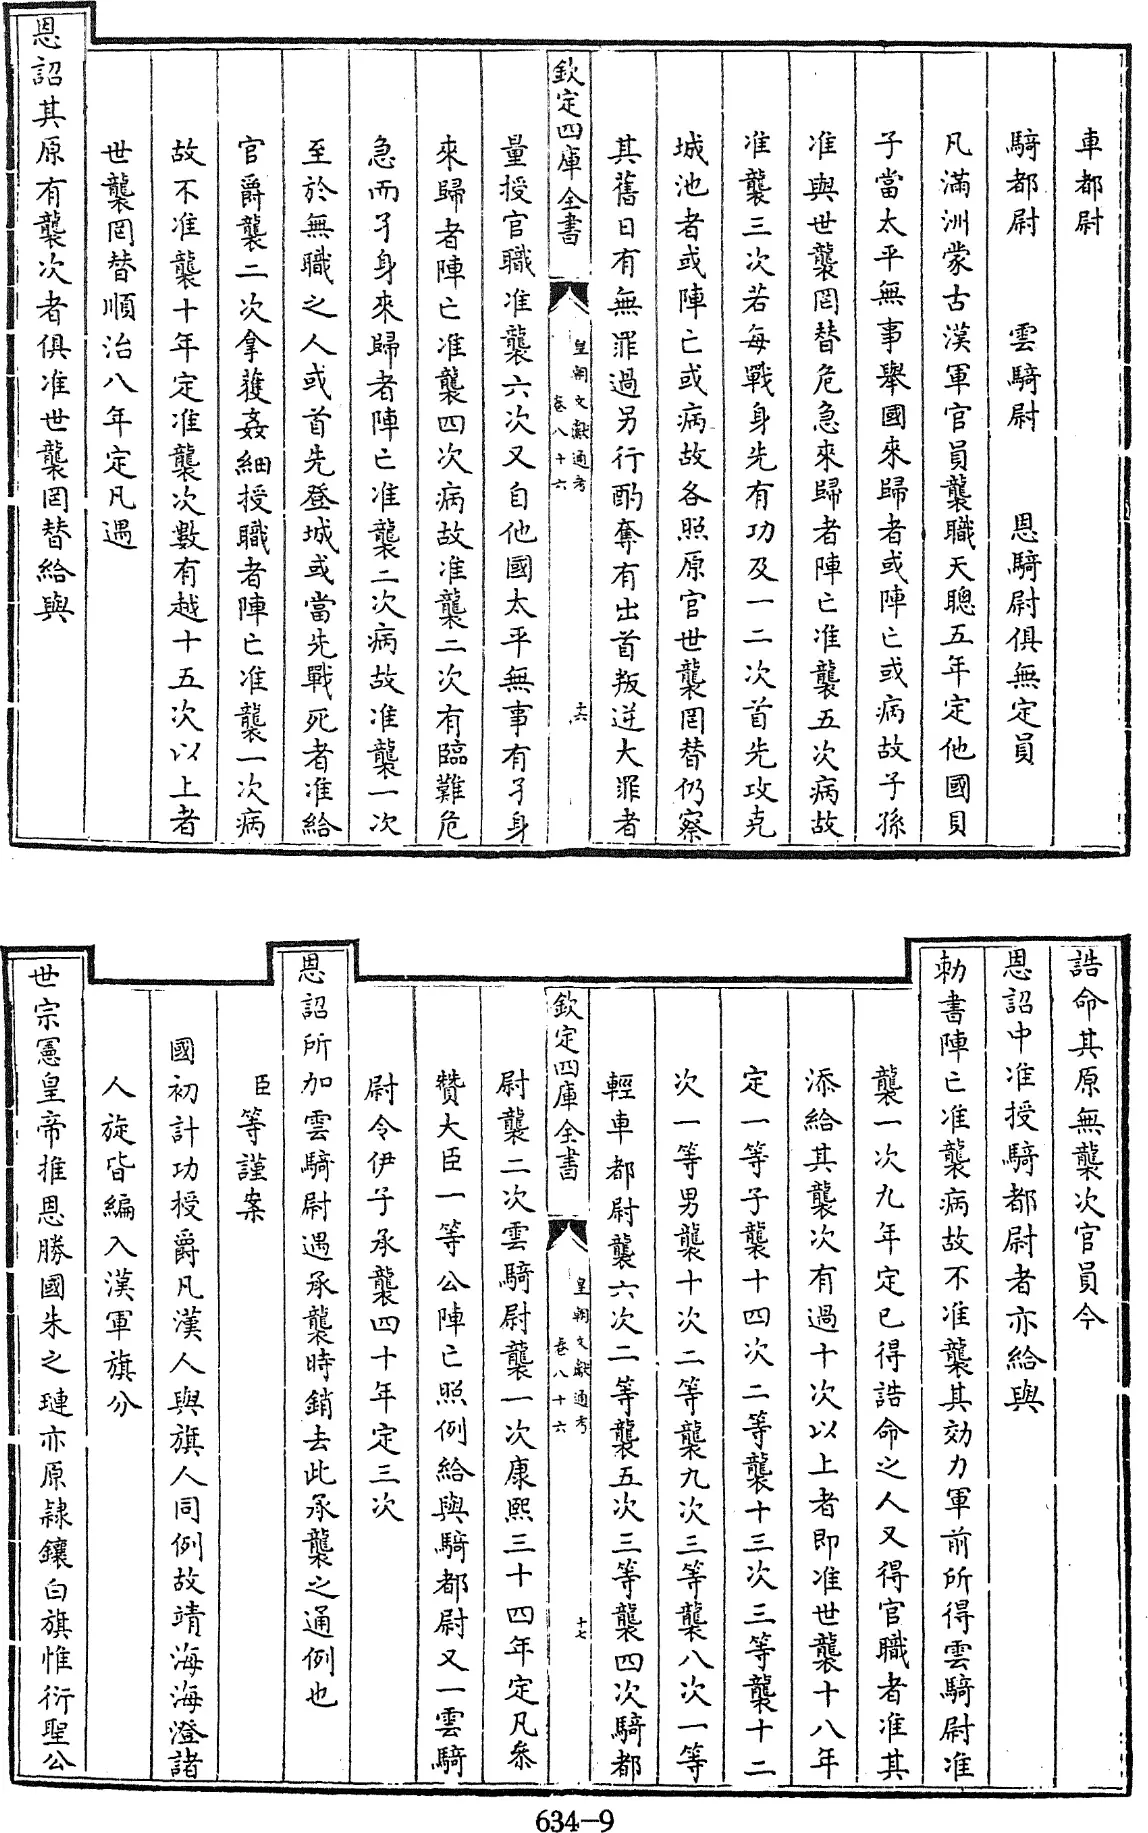 車都尉
騎都尉　雲騎尉　恩騎尉俱無定員
凡滿洲蒙古漢軍官員襲職天聰五年定他國貝
子當太平無事舉國來歸者或陣亡或病故子孫
准與世襲罔替危急來歸者陣亡准襲五次病故
准襲三次若每戰身先有功及一二次首先攻克
城池者或陣亡或病故各照原官世襲罔替仍察
其舊日有無罪過另行酌奪有出首叛逆大罪者
欽定四庫全書　皇朝文獻通考　卷八十六　十六
量授官職准襲六次又自他國太平無事有孑身
來歸者陣亡准襲四次病故准襲二次有臨難危
急而孑身來歸者陣亡准襲二次病故准襲一次
至於無職之人或首先登城或當先戰死者准給
官爵襲二次拿獲姦細授職者陣亡准襲一次病
故不准襲十年定准襲次數有越十五次以上者
世襲罔替順治八年定凡遇
恩詔其原有襲次者俱准世襲罔替給與
誥命其原無襲次官員今
恩詔中准授騎都尉者亦給與
勅書陣亡准襲病故不准襲其効力軍前所得雲騎尉准
襲一次九年定已得誥命之人又得官職者准其
添給其襲次有過十次以上者即准世襲十八年
定一等子襲十四次二等襲十三次三等襲十二
次一等男襲十次二等襲九次三等襲八次一等
輕車都尉襲六次二等襲五次三等襲四次騎都
欽定四庫全書　皇朝文獻通考　卷八十六　十七
尉襲二次雲騎尉襲一次康熙三十四年定凡叅
贊大臣一等公陣亡照例給與騎都尉又一雲騎
尉令伊子承襲四十年定三次
恩詔所加雲騎尉遇承襲時銷去此承襲之通例也
臣等謹案
國初計功授爵凡漢人與旗人同例故靖海海澄諸
人旋皆編入漢軍旗分
世宗憲皇帝推恩勝國朱之璉亦原隷鑲白旗惟衍聖公
634-9